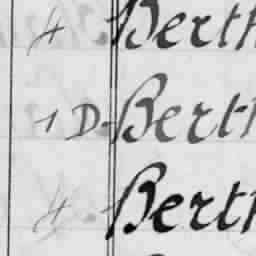 4 Berth
1 D. Berth
4 Berth